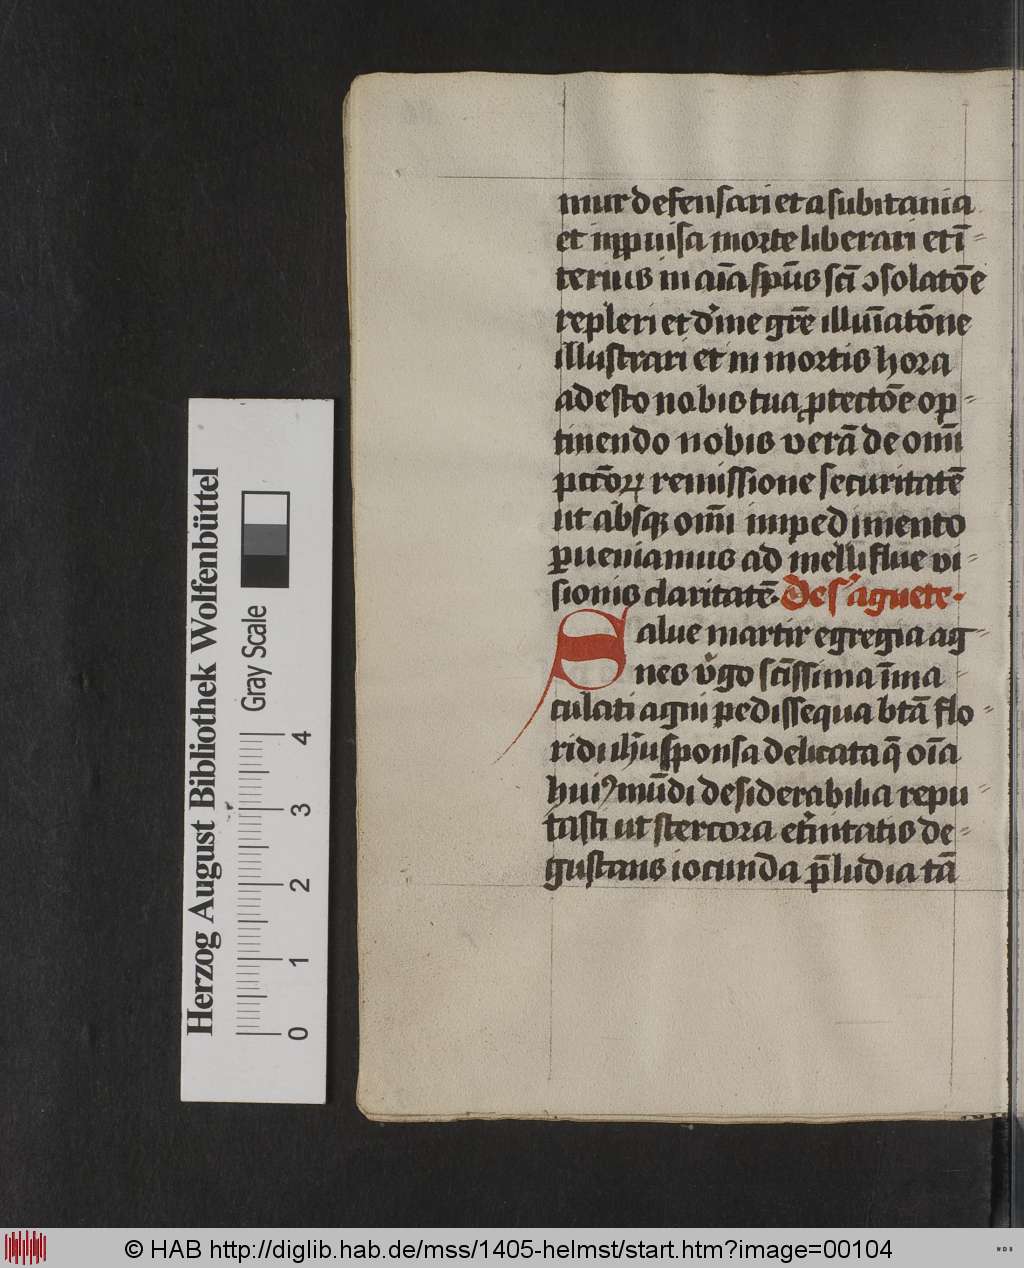 mur defensari et a subitania
et inprouisa morte liberari et ī-
terius in aīa spūs scī ↄsolatōe
repleri et diuīe grē illuīatōne
illustrari et in mortis hora
adesto nobis tua ꝓtectōe op-
tinendo nobis verā de omī
pctōꝝ remissione securitatē
ut absqꝫ omī impedimento
ꝑueniamus ad melliflue vi-
sionis claritatē. De s' agnete.
Salue martir egregia ag-
nes v'go scīssima īma-
culati agni pedissequa btā flo-
ridi ihū sponsa delicata q̄ oīa
huiꝰ mūdi desiderabilia repu-
tasti ut stercora et'nitatis de-
gustans iocunda p̄ludia tā
Herzog August Bibliothek Wolfenbüttel
Gray Scale
0 1 2 3 4
© HAB http://diglib.hab.de/mss/1405-helmst/start.htm?image=00104